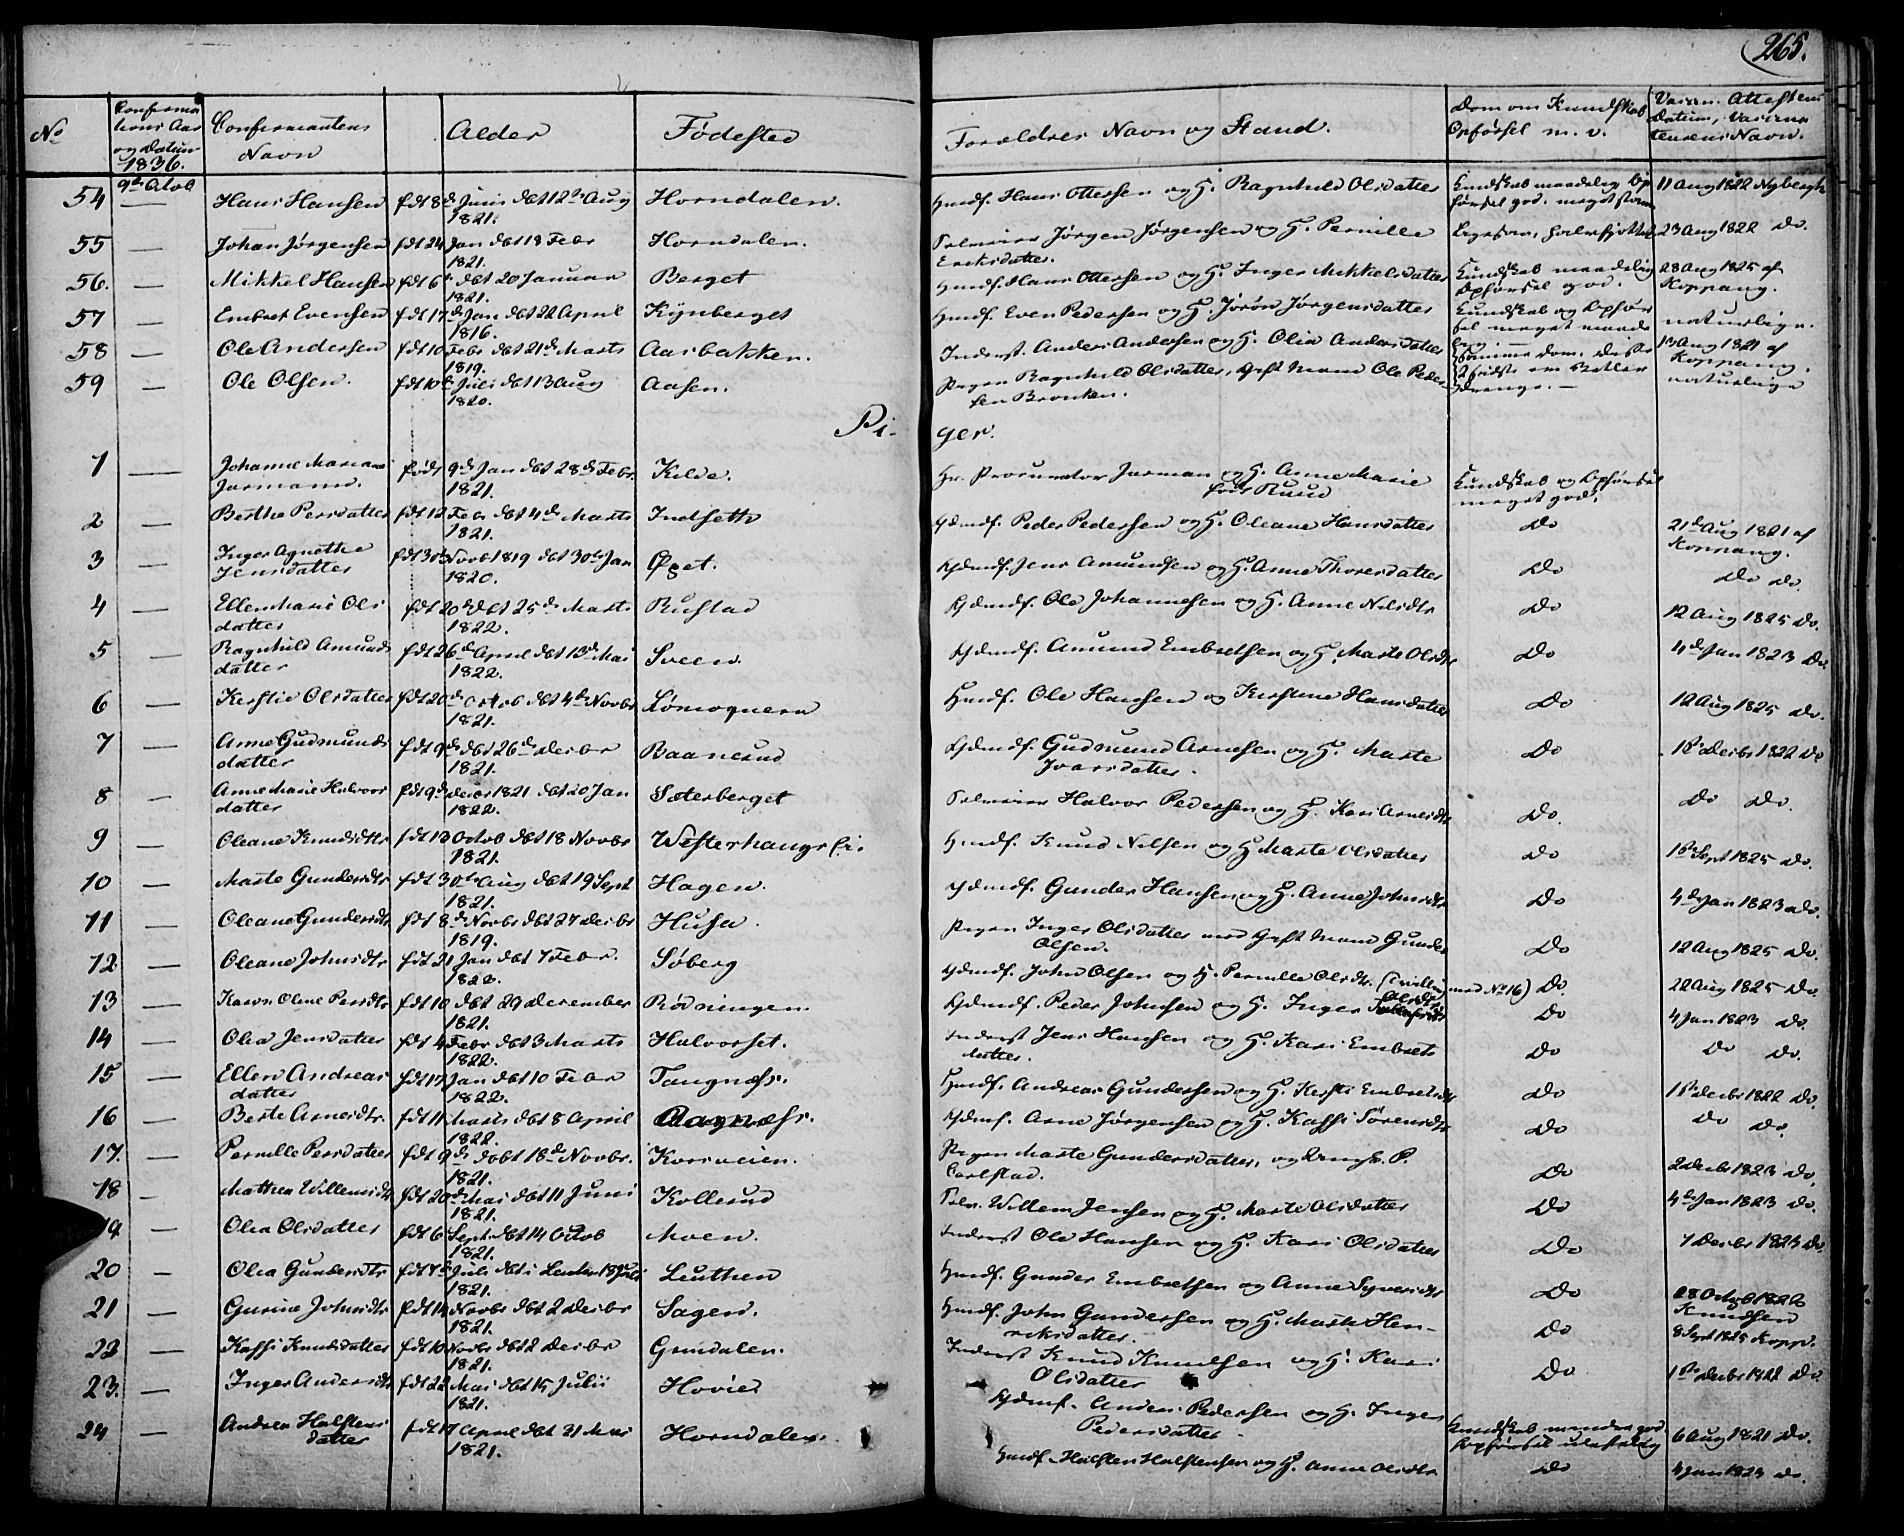 265.
No
Confirma
tions Aar
og Datum
1836.
Confirmantens
Navn
Alder
Fødested
Forældres Navn og Stand.
Dom om Kundskab
Opførsel m. v.
Vaccin. Attestens
Datum, Vaccina
teurens Navn.
9de Octob
54 — Hans Hansen fdt 8de Junii døbt 12te Aug 1821. Horndalen. Huusmd. Hans Ottersen og H. Ragnhild Olsdatter Kundskab maadelig Op
førsel god. 11 Aug 1822 Nybergh
55 — Johan Jørgensen fdt 24 Jan døbt 18 Febr 1821. Horndalen. Selveier Jørgen Jørgensen og H. Pernille
Eriksdatter. 23 Aug 1822 Do.
56. — Mikkel Hansen fdt 6te døbt 20 Januar 1821. Berget Huusmd. Hans Ottersen og H. Inger Mikkelsdatter Kundskab maadelig
Opførsel god. 28 Aug 1825 af
Koppang.
57 — Embret Evensen fdt 17de Jan døbt 22 April 1816. Kynberget Huusmd. Even Pedersen og H. Jørøn Jørgensdatter Kundskab og Opfør
sel meget maade
lig naturlige.
58 — Ole Andersen fdt 10 Febr døbt 21de Marts 1819. Aasbakken. Inderst. Anders Andersen og H. Olia Andersdatter samme dom. 13 Aug 1821 af
Koppang.
59 — Ole Olsen. fdt 10de Juli døbt 13 Aug 1820. Aasen. Pigen Ragnhild Olsdatter, Gift Mand Ole Peder
sen Bronken. naturlige
Pi-
ger.
1 — Johanne Mariane
Jarmann. født 9de Jan døbt 28de Febr. 1821. Kilde. Hr. Procurator Jarman og H. Anne Marie
født Ruud Kundskab og Opførsel
meget god.
2 — Berthe Persdatter fdt 12 Febr døbt 4de Marts 1821. Indseth Gdmd. Peder Pedersen og H. Oleane Hansdatter Do 21de Aug 1821 af
Koppang.
3 — Inger Agnethe
Jensdatter fdt 30te Novbr 1819 døbt 30te Jan 1820. Øget. Gdmd. Jens Amundsen og H. Anne Thoresdatter Do Do Do.
4 — Ellen Marie Ols
datter fdt 20de døbt 25de Marts 1822. Rustad Gdmd. Ole Johannesen og H. Anne Nilsdtr Do 12 Aug 1825 Do.
5 — Ragnhild Amunds
datter fdt 26de April døbt 13de Mai 1822. Sveen. Gdmd. Amund Embretsen og H. Marte Olsdtr Do 4de Jan 1823 Do.
6 — Kerstie Olsdatter fdt 20de Octob døbt 4de Novbr 1821. Huusmd. Ole Hansen og Kirstine Hansdatter Do 12 Aug 1825 Do.
7 — Anne Gudmunds
datter fdt 9de døbt 26de Decbr 1821. Baanerud Gdmd. Gudmund Arnesen og H. Marte
Ivarsdatter. Do 18 Decbr 1822 Do
8 — Anne Marie Halvors
datter fdt 9de Decbr 1821 døbt 20 Jan 1822. Sæterberget Selveier Halvor Pedersen og H. Kari Arnesdtr Do. Do Do.
9 — Oleane Knudsdtr fdt 13 Octob døbt 18 Novbr 1821. Huusmd. Knud Nilsen og H. Marte Olsdatter Do 1ste Sept 1825 Do.
10 — Marte Gundersdtr fdt 30te Aug døbt 19 Sept 1821. Hagen. Gdmd. Gunder Hansen og H. Anne Johnsdtr Do 4de Jan 1823 Do.
11 — Oleane Gundersdtr fdt 8de Novbr døbt 27 Decbr 1819. Husa. Pigen Inger Olsdatter med Gift Mand Gunder
Olsen. Do 12 Aug 1825 Do.
12 — Oleane Johnsdtr fdt 21 Jan døbt 7 Febr. 1822. Søberg Gdmd. John Olsen og H. Pernille Olsdtr. (Tvilling med No 16) Do. 22 Aug 1825 Do.
13 — Karen Oline Persdtr fdt 10 døbt 29 December 1821. Rødningen. Gdmd. Peder Johnsen og H. Inger Olsdtr Do 4 Jan 1823 Do.
14 — Olea Jensdatter fdt 4 Febr døbt 3 Marts 1822. Halvorset. Inderst Jens Hansen og H. Kari Embrets
datter. Do Do Do.
15 — Ellen Andreas
datter fdt 17 Jan døbt 10 Febr 1822. Tangnæss. Huusmd. Andreas Gundersen og H. Kersti Embretsdtr Do 1ste Decbr 1822 Do.
16 — Berte Arnesdtr. fdt 11 Marts døbt 8 April 1822. Gdmd. Arne Jørgensen og H. Kassi Sørensdtr Do Do Do.
17. — Pernille Persdatter fdt 9de døbt 18de Novbr. 1821. Korsveien. Pigen Marte Gundersdatter, og Ungk. P.
Carlstad. Do 2 Decbr 1823 Do.
18 — Mathea Willemsdtr fdt 20de Mai døbt 11 Juni 1821. Kollerud Selv. Willem Jensen og H. Marte Olsdatter Do 4de Jan 1823 Do.
19. — Olea Olsdatter fdt 6 Sept. døbt 14 Octob 1821. Moen. Inderst Ole Hansen og H. Kari Olsdatter Do 7 Decbr 1823 Do.
20 — Olea Gundersdtr fdt 7de Juli døbt i Leuten 18 Juli 1821. Leuthen Huusmd. Gunder Embretsen og Anne Syversdtr Do 28 Octob 1822
Knudsen
21 — Gurine Johnsdtr fdt 14 Novbr døbt 2 Decbr 1821. Sagen. Huusmd. John Gundersen og H. Marte Hen-
riksdatter. Do 8 Sept 1825 Kopp.
22 — Kassi Knudsdatter fdt 10 Novbr døbt 2 Decbr 1821. Grindalen. Inderst Knud Knudsen og H. Kari
Olsdatter Do 1ste Decbr 1822 Do.
23. — Inger Andersdtr fdt 22 Mai døbt 15 Julii 1821. Hovie Gdmd. Anders Pedersen og H. Inger
Pedersdatter. Kundskab god
Opførsel ulastelig 6 Aug 1821 Do.
24 — Andrea Halstens
datter fdt 17 April døbt 21 Mai 1821. Horndalen. Huusmd. Halsten Halstensen og H. Anne Olsdtr Do 4 Jan 1823 Do.